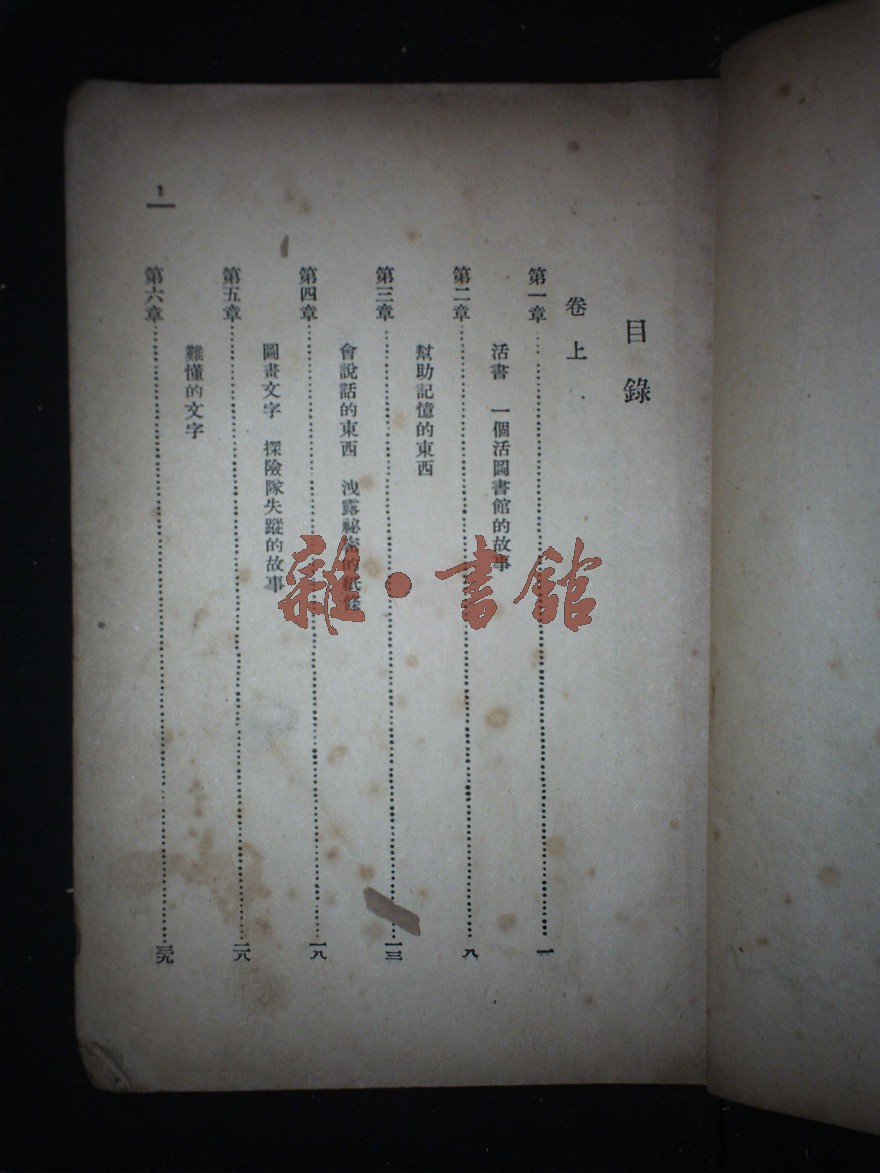 目錄
卷上
第一章……一
活書　一個活圖書館的故事
第二章……八
幫助記憶的東西
第三章……一三
會說話的東西　洩露祕密的紙條
第四章……一八
圖畫文字　探險隊失蹤的故事
第五章……二八
難懂的文字
第六章……三九
1
雜·書館